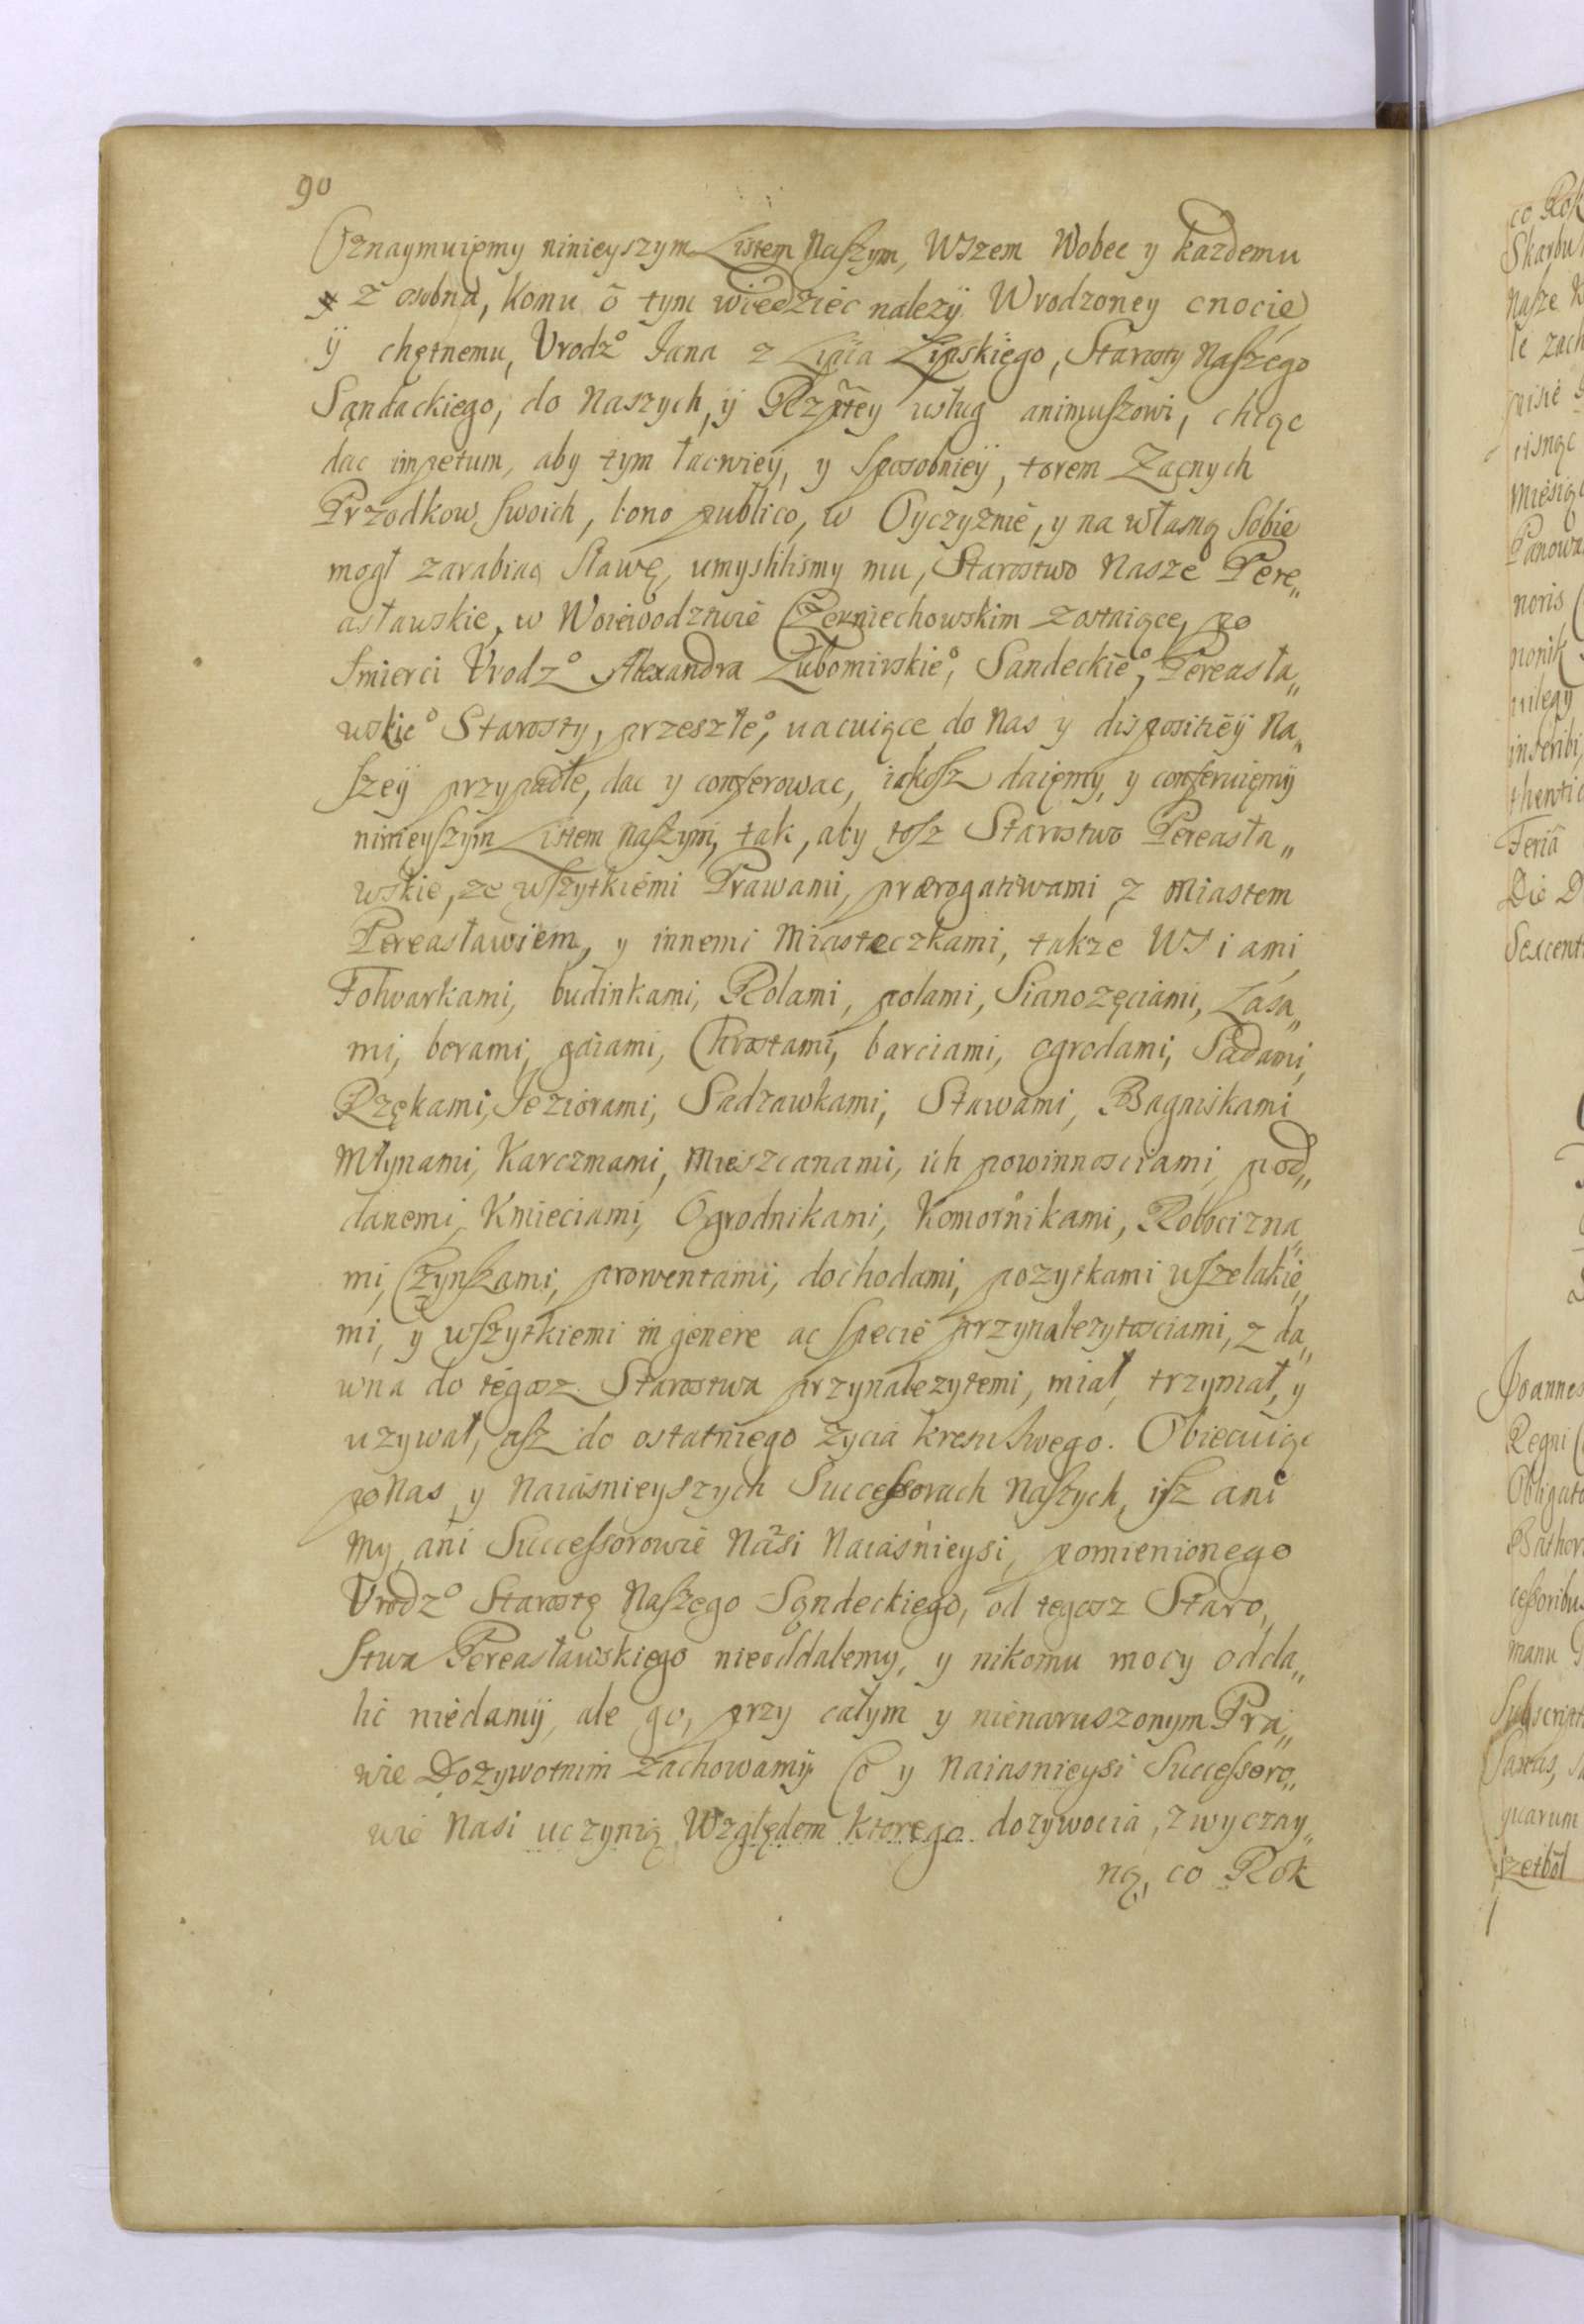 90
Oznaymuięmy ninieyszym Listem Naszym, Wszem Wobec y każdemu
z osobna, Komu o tym wiedzieć nalezÿ. Wrodzoney cnocie
ÿ chętnemu, Vrodz° Jana z Lipia Lipskiego, Starosty Naszego
Sąndackiego, do Naszych, ÿ Rzptey usług animuszowi, chcąc
dac impetum, aby tym łacwieÿ, y Sposobnieÿ, torem Zacnych
Przodkow swoich, bono publico, w Oyczyznie, y na własną Sobie
mogł zarabiac Sławę, umyslilismy mu, Starostwo Nasze Pere„
asławskie, w Woiewodztwie Czerniechowskim zostaiące, po
Smierci Vrodz° Alexandra Lubomirskie°, Sandeckie°, Pereasła„
wskie° Starosty, przeszłe°, vacuiące do Nas y dispositieÿ Na„
szeÿ przypadłe, dac y conferowac, iakosz daięmy, y conferuięmÿ
ninieyszÿm Listem Naszym, tak, aby tosz Starostwo Pereasła„
wskie, ze wszytkiemi Prawami, prærogatiwami z Miastem
Pereasławiem, y innemi Miasteczkami, takze WSiami,
Folwarkami, budinkami, Rolami, polami, Sianozęciami, Lása„
mi, borami, gaiami, Chrostami, barciami, ogrodami, Sadami,
Rzękami, Jeziorami, Sadzawkami, Stawami, Bagniskami
Młynami, Karczmami, Mieszcanami, ich powinnosciami, pod„
danemi, Kmieciami, Ogrodnikami, Komornikami, Robocizna„
mi, Czynszami, prowentami, dochodami, pozytkami wszelakie„
mi, y wszytkiemi in genere ac specie przynalezytosciami, z da„
wna do tegosz Starostwa przynalezytemi, miał, trzymał, y
uzywał, asz do ostatniego zycia kresu swego. Obiecuiąc
po Nas, y Naiasnieyszych Successorach Naszych, isz ani
My, ani Successorowie Nasi Naiaśnieysi, pomienionego
Vrodz° Starostę Naszego Sąndeckiego, od tegosz Staro„
stwa Pereasławskiego nieoddalemy, y nikomu mocy odda„
lić niedamÿ, ale go, przy całym y nienaruszonym Pra„
wie Dozywotnim zachowamÿ. Co y Naiasnieysi Successoro„
wie Nasi uczynią. Względem ktorego dozywocia, zwyczay„
ną, co Rok